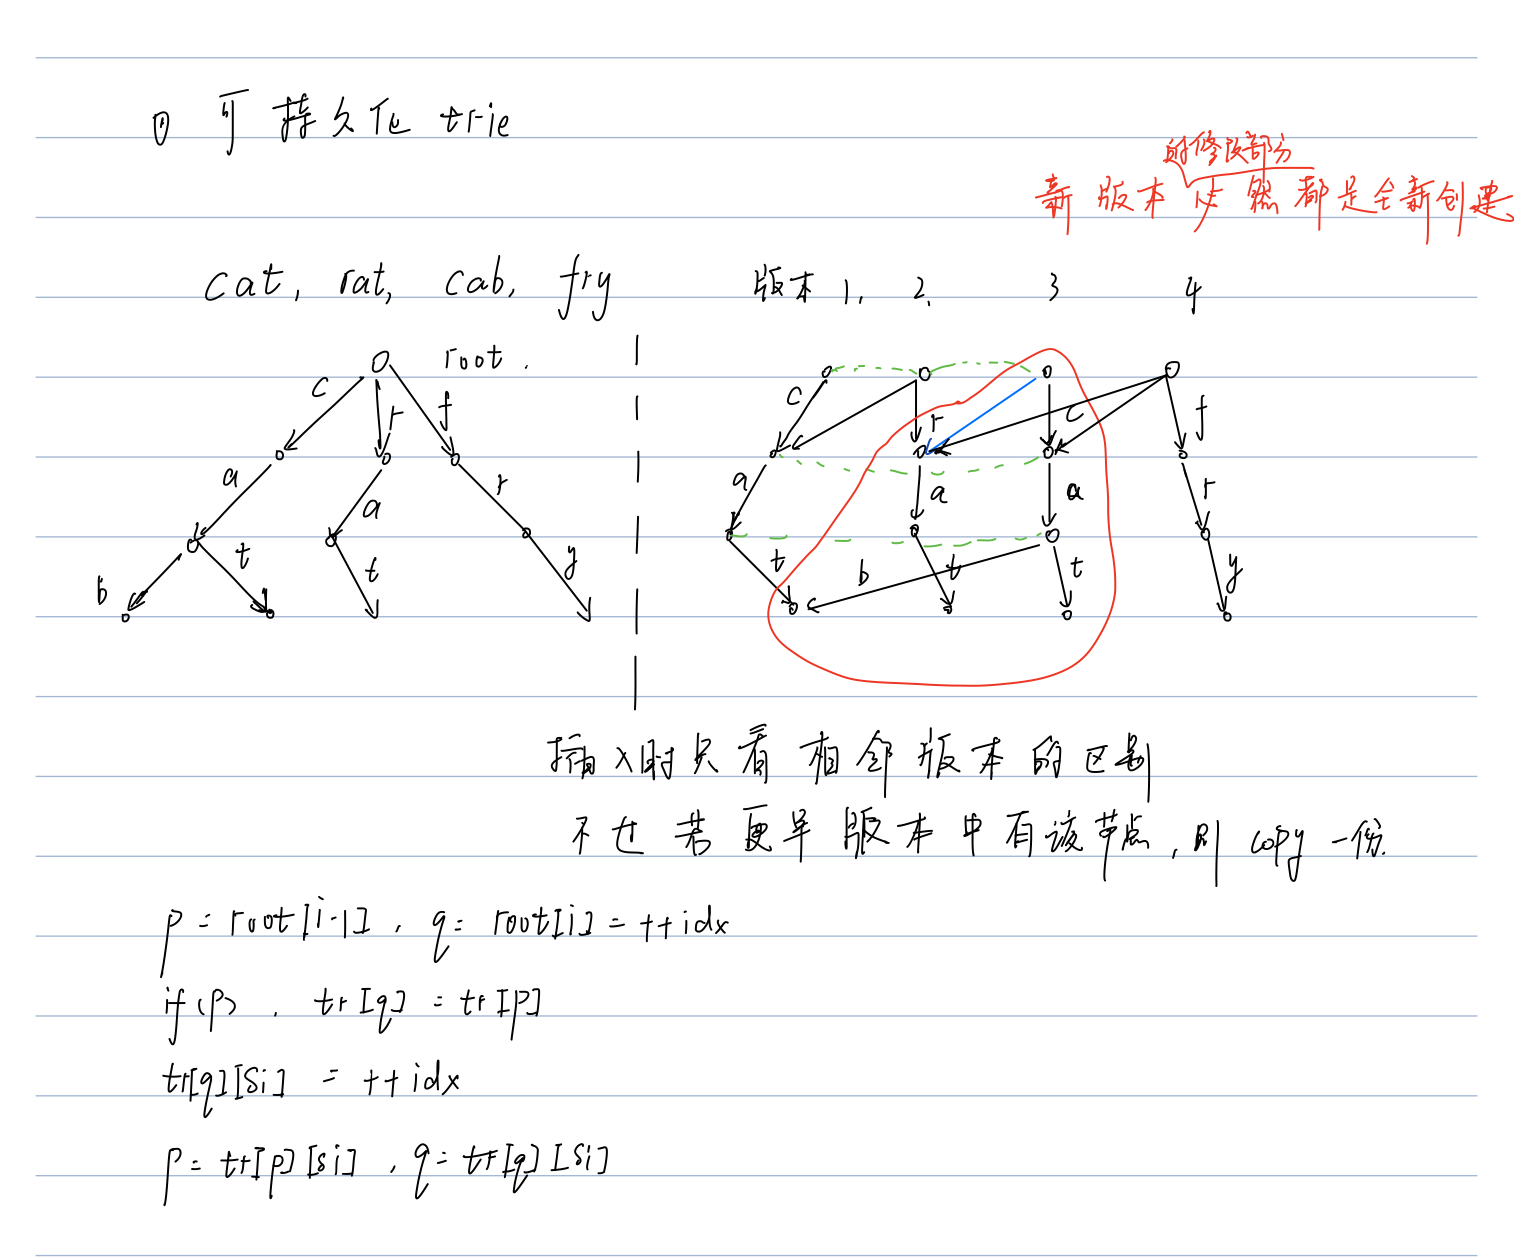 ① 可持久化 trie
的修改部分
新版本必然都是全新创建
cat, rat, cab, fry 版本 1, 2, 3 4
root.
c r f c r c f
a a r a a a r
b t t y t b t t y
插入时只看相邻版本的区别
不过若更早版本中有该节点, 则 copy 一份.
p = root[i-1] , q = root[i] = ++idx
if(p) , tr[q] = tr[p]
tr[q][si] = ++idx
p = tr[p][si] , q = tr[q][si]